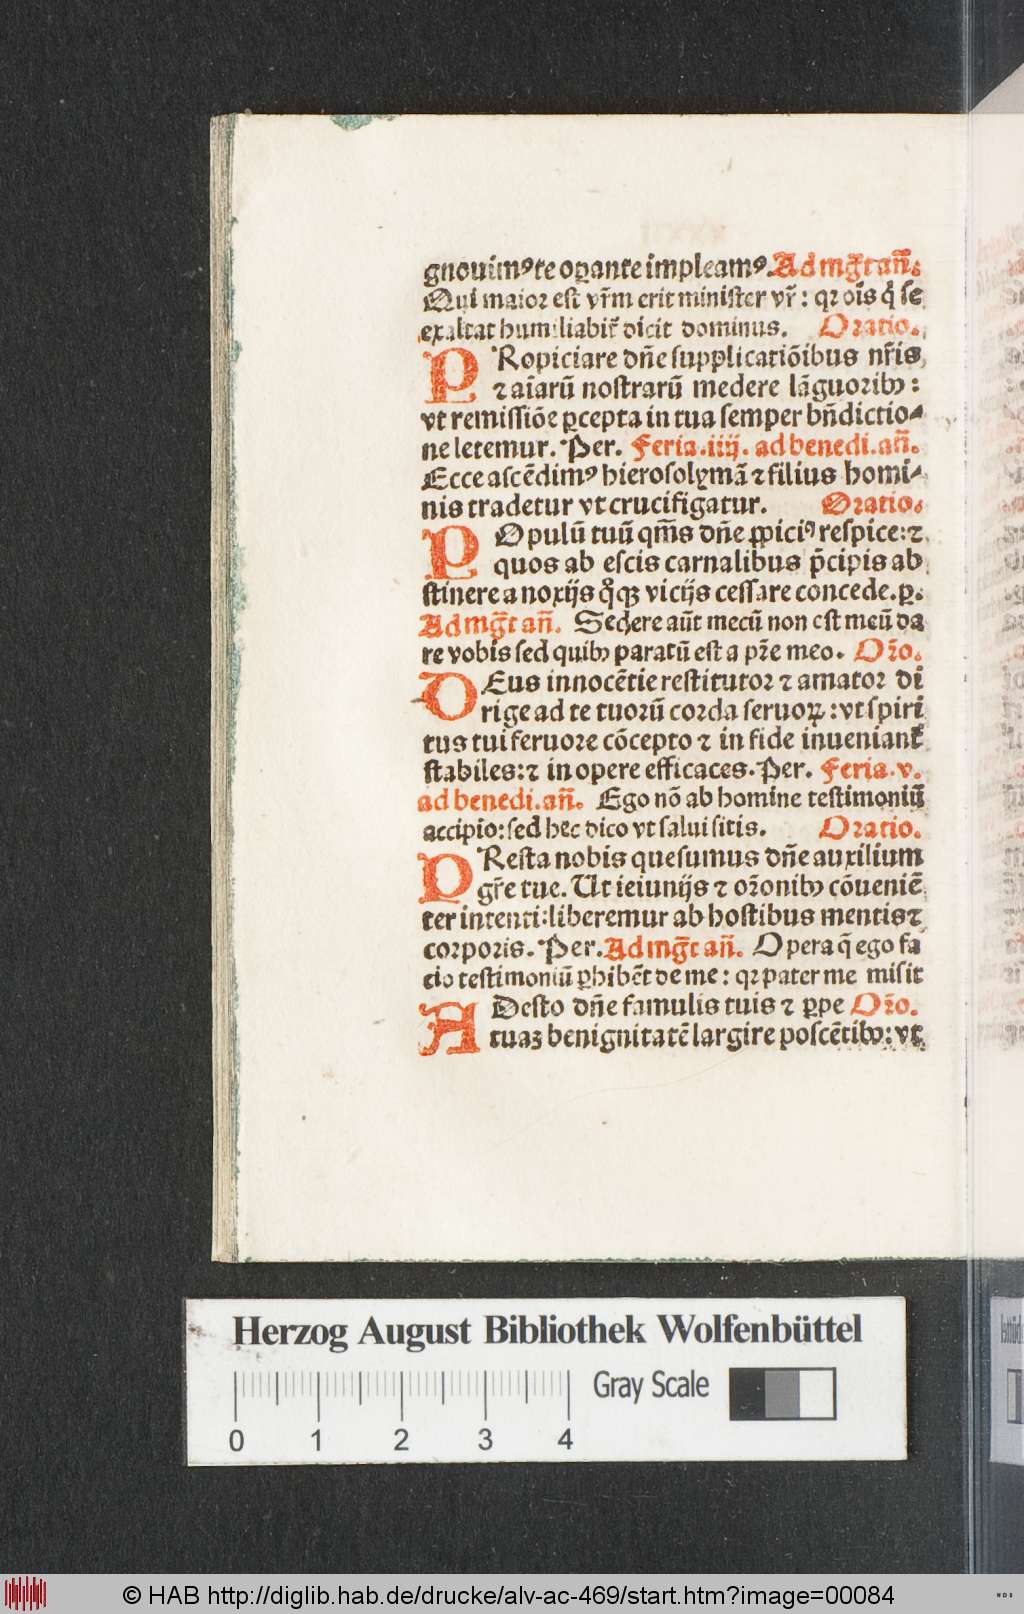 gnouim᷒ te oꝑante impleam᷒. Ad mg̃t añ.
Qui maior est vr̃m erit minister vr̃: qꝛ oĩs q̇ se
exaltat humiliabit̃ dicit dominus. Oratio.
PRopiciare dñe supplicatiõibus nr̃is
⁊ aĩarũ nostrarũ medere lãguoribꝫ:
vt remissiõe ꝑcepta in tua semper bñdictio⸗
ne letemur. Per. Feria.iiij. ad benedi.añ.
Ecce ascẽdim᷒ hierosolymã ⁊ filius homi⸗
nis tradetur vt crucifigatur. Oratio.
POpulũ tuũ qm̃s dñe ꝓpici᷒ respice:⁊
quos ab escis carnalibus p̃cipis ab
stinere a noxijs qͦꝫ vicijs cessare concede.ꝑ.
Ad mg̃t añ. Sedere aũt mecũ non est meũ da
re vobis sed quibꝫ paratũ est a pr̃e meo. Oꝛ̃o.
DEus innocẽtie restitutor ⁊ amator di
rige ad te tuorũ corda seruoꝝ: vt spiri
tus tui feruore cõcepto ⁊ in fide inueniant̃
stabiles:⁊ in opere efficaces. Per. Feria.v.
ad benedi.añ. Ego nõ ab homine testimoniũ
accipio: sed hec dico vt salui sitis. Oratio.
PResta nobis quesumus dñe auxilium
gr̃e tue. Ut ieiunijs ⁊ oꝛ̃onibꝫ cõueniẽ
ter intenti: liberemur ab hostibus mentis ⁊
corporis. Per. Ad mg̃t añ. Opera q̃ ego fa
cio testimoniũ ꝑhibẽt de me: qꝛ pater me misit
ADesto dñe famulis tuis ⁊ ꝑpe Oꝛ̃o.
tuaꝫ benignitatẽ largire poscẽtibꝫ: vt
Herzog August Bibliothek Wolfenbüttel
Gray Scale
0 1 2 3 4
© HAB http://diglib.hab.de/drucke/alv-ac-469/start.htm?image=00084